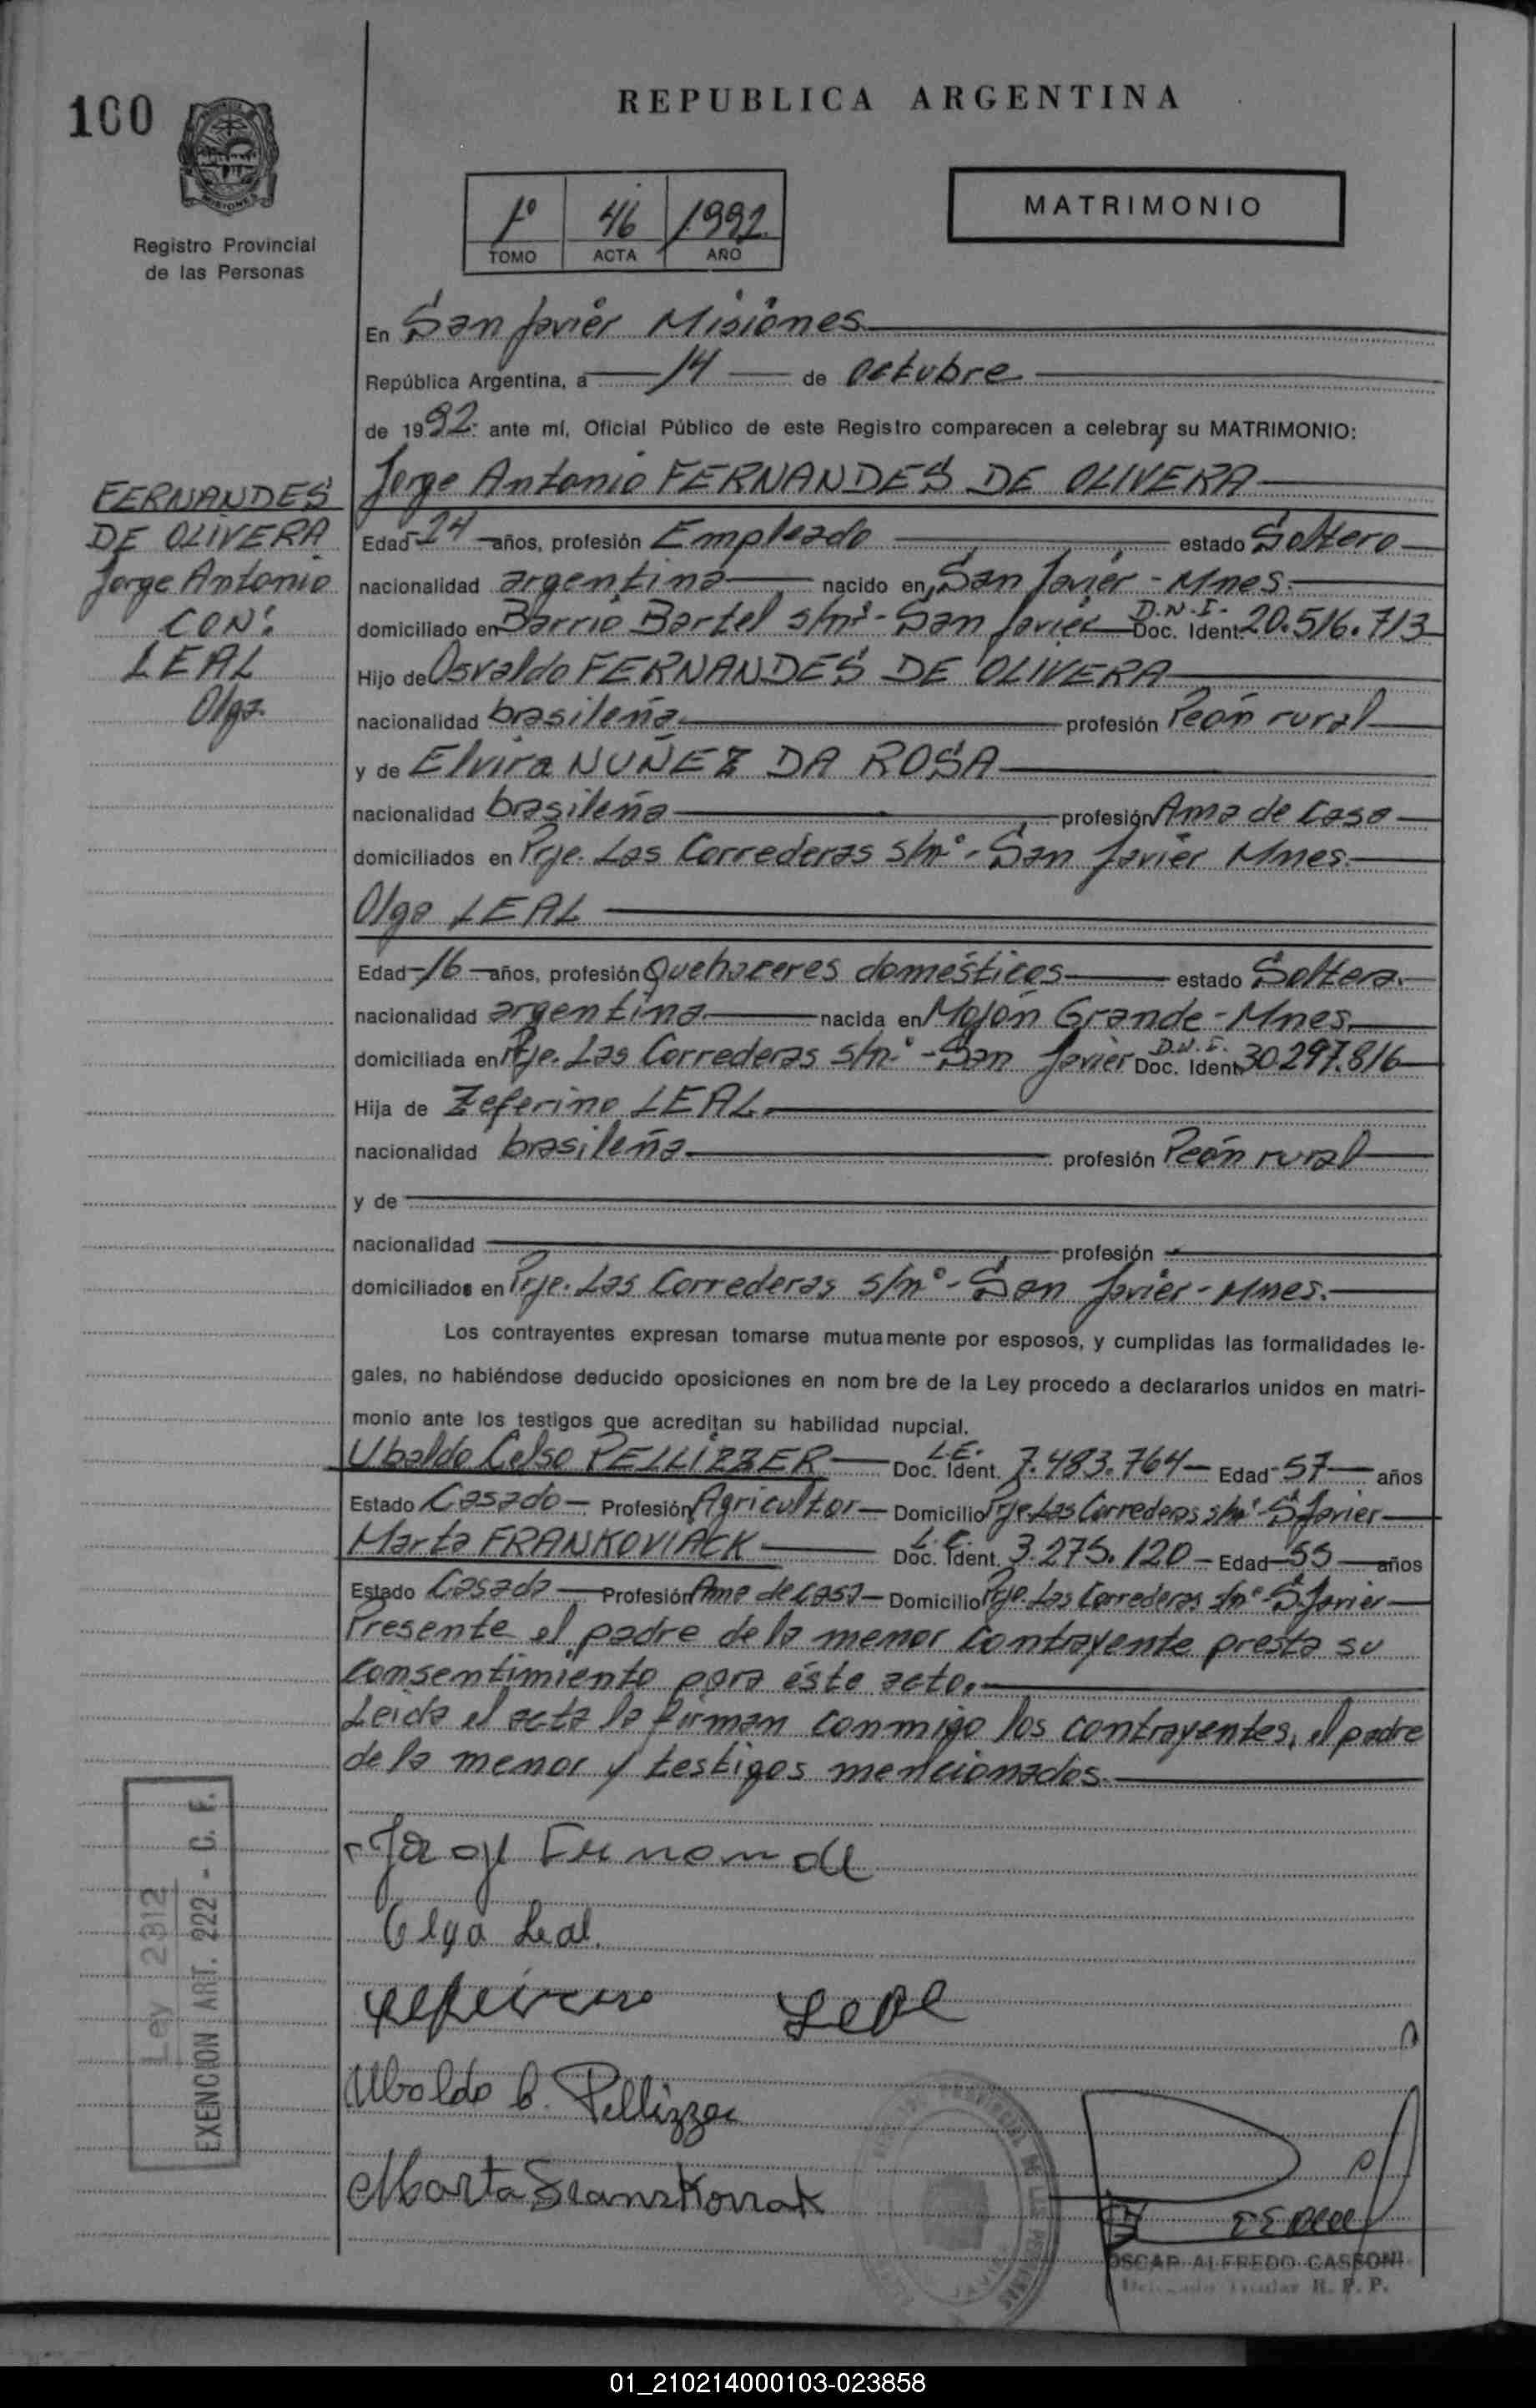 100
REPUBLICA ARGENTINA
MISIONES
Registro Provincial
de las Personas
1º 46 1992
TOMO ACTA AÑO
MATRIMONIO
En San Javier Misiones
República Argentina, a 14 de octubre
de 1992. ante mí, Oficial Público de este Registro comparecen a celebrar su MATRIMONIO:
FERNANDES
DE OLIVERA
Jorge Antonio
CON:
LEAL
Olga.
Jorge Antonio FERNANDES DE OLIVERA
Edad 24 años, profesión Empleado estado Soltero
nacionalidad argentina nacido en San Javier - Mnes.
domiciliado en Barrio Bartel s/nº - San Javier D.N.I. Doc. Ident. 20.516.713
Hijo de Osvaldo FERNANDES DE OLIVERA
nacionalidad brasileña profesión Peón rural
y de Elvira NUÑEZ DA ROSA
nacionalidad brasileña profesión Ama de casa
domiciliados en Pje. Las Correderas s/nº - San Javier Mnes.
Olga LEAL
Edad 16 años, profesión Quehaceres domésticos estado Soltera.
nacionalidad argentina nacida en Mojón Grande - Mnes.
domiciliada en Pje. Las Correderas s/nº - San Javier D.N.I. Doc. Ident. 30.297.816
Hija de Zeferino LEAL
nacionalidad brasileña profesión Peón rural
y de
nacionalidad profesión
domiciliados en Prje. Las Correderas s/nº - San Javier - Mnes.
Los contrayentes expresan tomarse mutuamente por esposos, y cumplidas las formalidades le-
gales, no habiéndose deducido oposiciones en nom bre de la Ley procedo a declararlos unidos en matri-
monio ante los testigos que acreditan su habilidad nupcial.
Ubaldo Celso PELLIZZER L.E. Doc. Ident. 7.483.764 Edad 57 años
Estado Casado Profesión Agricultor Domicilio Pje. Las Correderas s/nº - S. Javier
Marta FRANKOVIACK L.C. Doc. Ident. 3.275.120 Edad 55 años
Estado Casada Profesión Ama de casa Domicilio Pje. Las Correderas s/nº - S. Javier
Presente el padre de la menor contrayente presta su
consentimiento para éste acto.
Leida el acta la firman conmigo los contrayentes, el padre
de la menor y testigos mencionados.
Olga Leal.
Leal
Ubaldo C. Pellizzer
Marta
Ley 2312
EXENCION ART. 222 - C. F.
OSCAR ALFREDO CASSONI
Delegado Titular R. P. P.
01_210214000103-023858